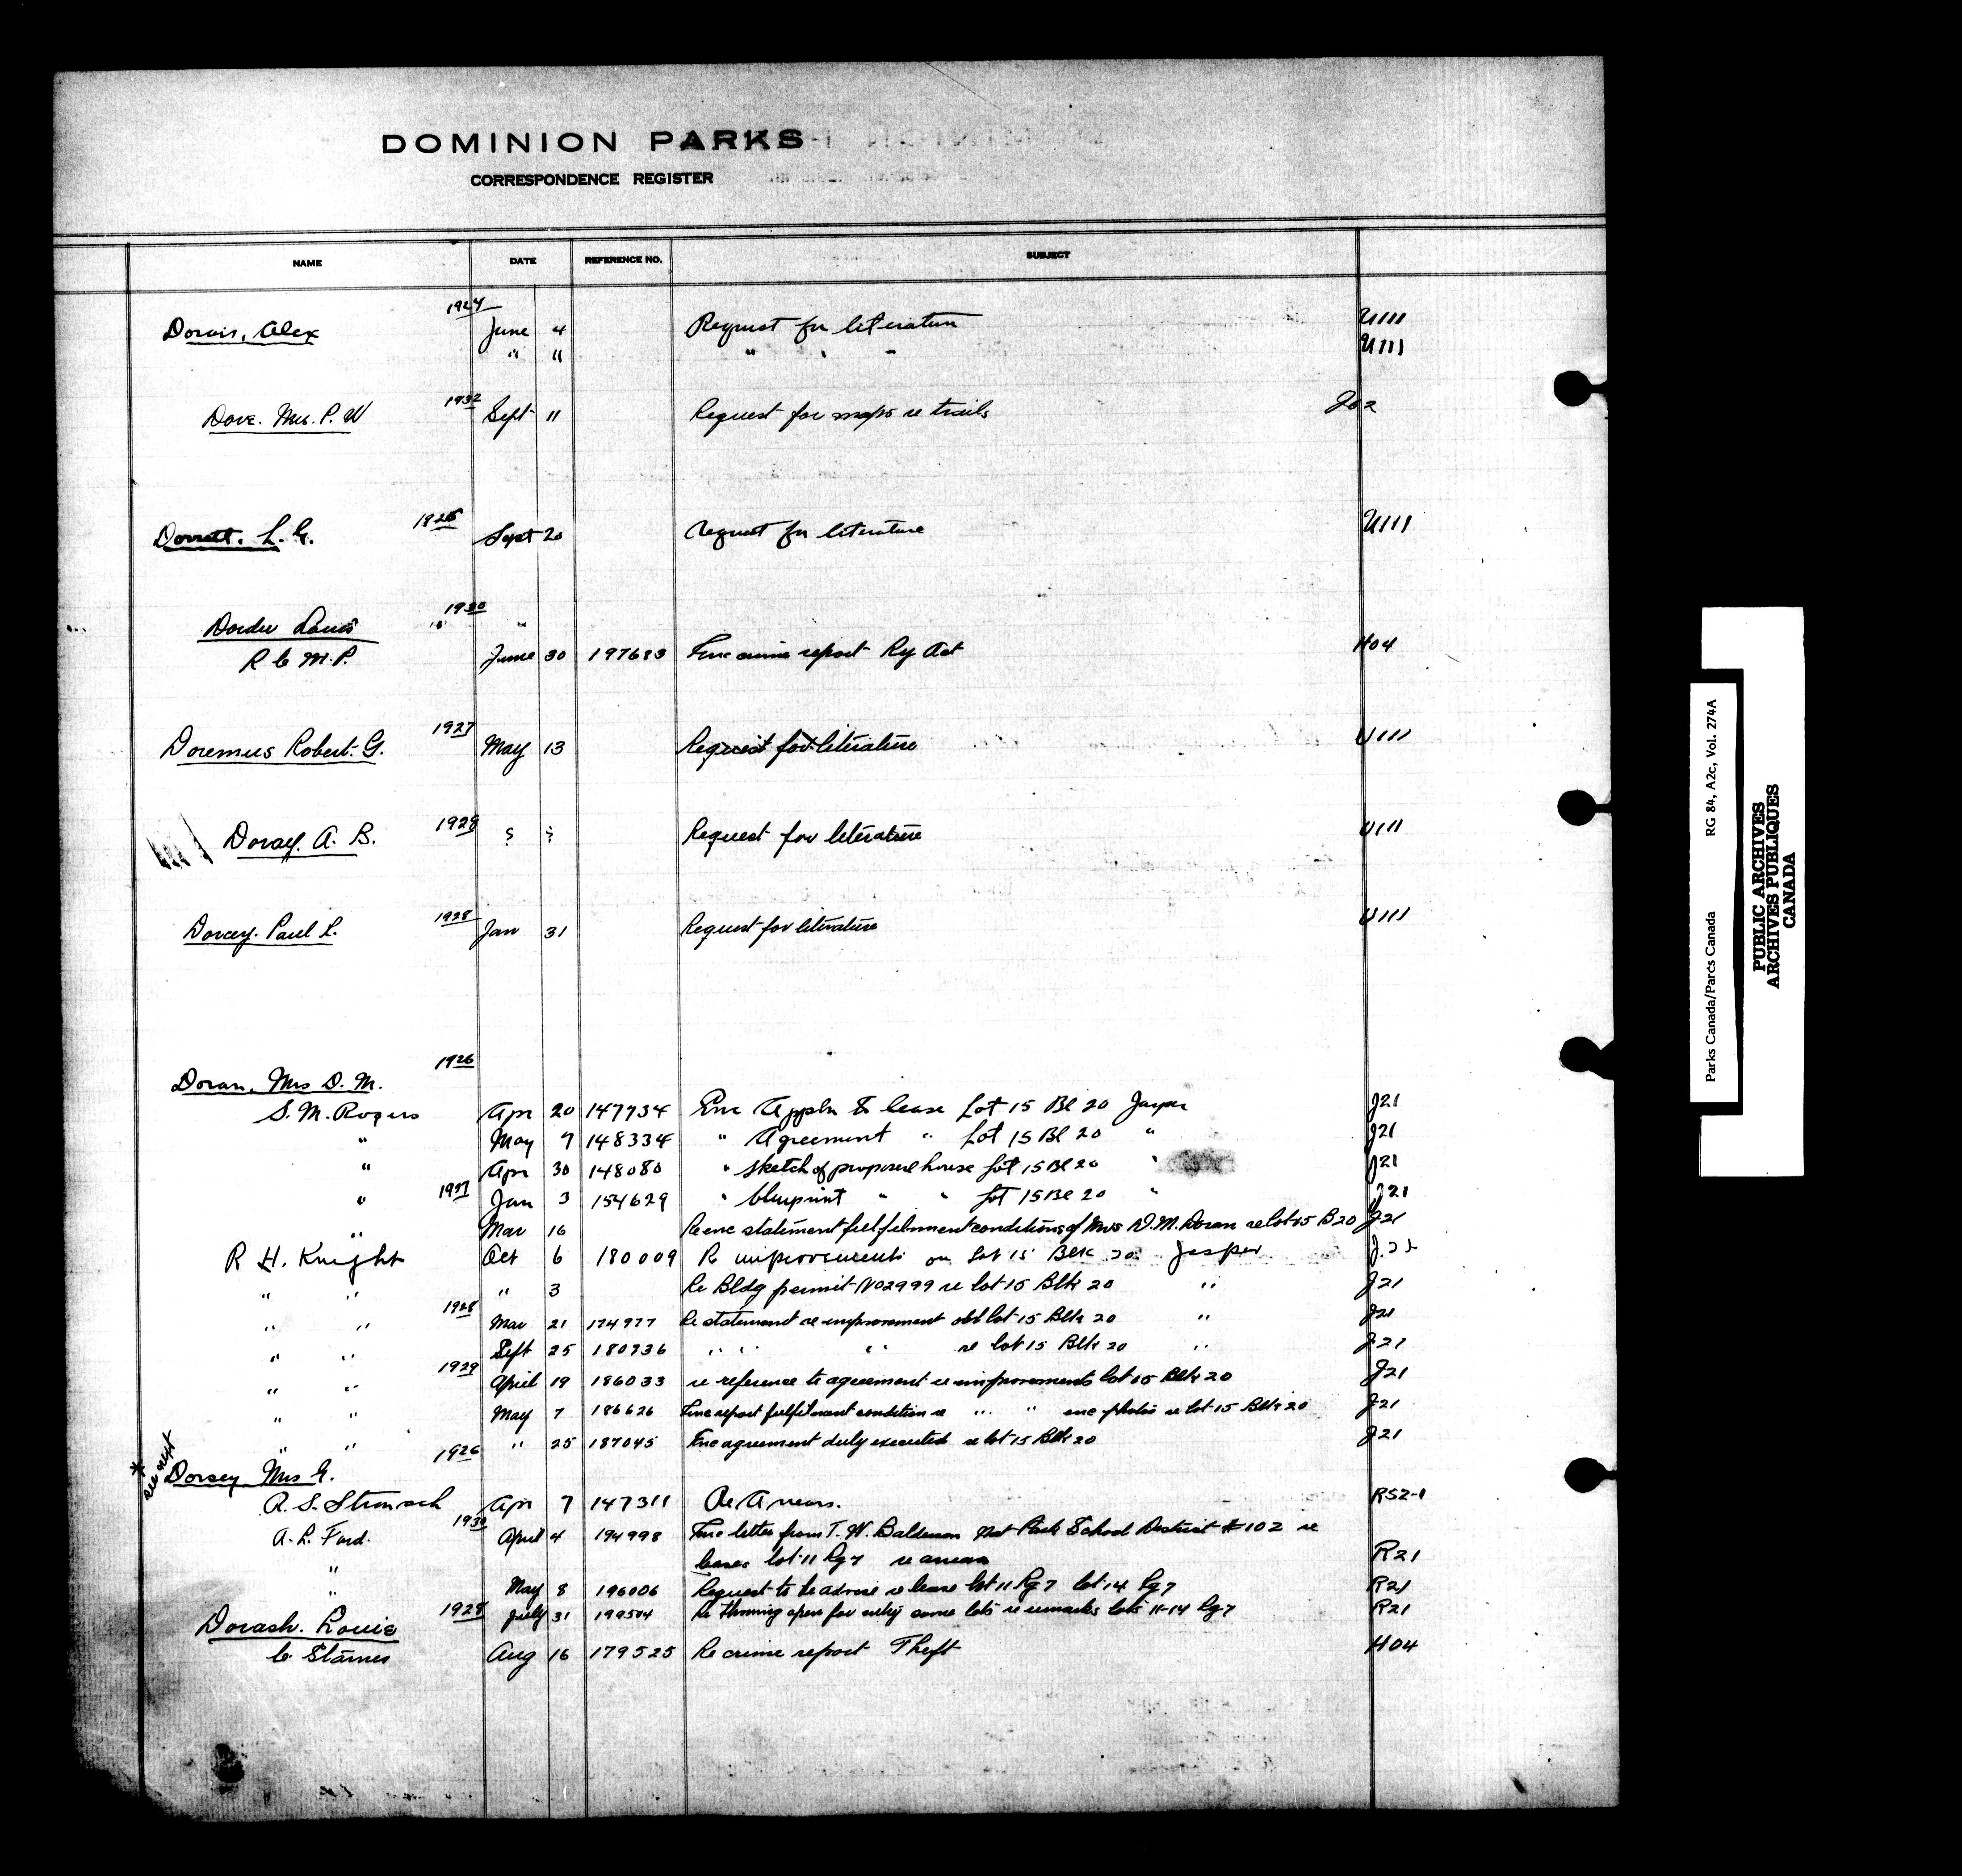 DOMINION PARKS
CORRESPONDENCE REGISTER
NAME DATE REFERENCE NO. SUBJECT
1924
Dorais, Alex June 4 Request for literature U111
" 11 " " " U111
1932
Dore. Mrs. P. W Sept 11 Request for maps re trails J02
Dorrett. L. G. Sept 20 Request for literature U111
1930
Dorder Louis
R C M. P. June 30 197683 Enc crime report Ry Act H04
1927
Doremus Robert. G. May 13 Request for literature U111
1928
Doray. A. B. ? ? Request for literature U111
1928
Dorcey. Paul L. Jan 31 Request for literature U111
1926
Doran, Mrs D. M.
S. M. Rogers Apr 20 147734 Enc Appln to lease Lot 15 Bl 20 Jasper J21
" May 7 148334 " Agreement " Lot 15 Bl 20 " J21
" Apr 30 148080 " sketch of proposed house Lot 15 Bl 20 " J21
1927
" Jan 3 154629 " blueprint " " Lot 15 Bl 20 " J21
" Mar 16 Re enc statement fulfilment conditions of Mrs D. M. Doran re lot 15 B20 J21
R H. Knight Oct 6 180009 R improvements on Lot 15 Blk 20 Jasper J.21
" " " 3 Re Bldg permit No2999 re lot 15 Blk 20 " J21
1928
" " Mar 21 174977 Re statement re improvement obl lot 15 Blk 20 " J21
" " Sept 25 180736 " " " re lot 15 Blk 20 " J21
1929
" " April 19 186033 re reference to agreement re improvements lot 15 Blk 20 J21
" " May 7 186626 Enc report fulfilment condition re " " enc photos re lot 15 Blk 20 J21
" " " 25 187045 Enc agreement duly executed re lot 15 Blk 20 J21
1926
* see next
Dorsey Mrs G.
R. S. Stronach Apr 7 147311 Re Arrears. R52-1
1930
A. L. Ford. April 4 194998 Enc letter from T. W. Balderson Nat Park School District #102 re
" leases lot 11 Rg 7 re arrears R21
" May 8 196006 Request to be advise re lease lot 11 Rg 7 lot 14 Rg 7 R21
July 31 198504 Re throwing open for entry some lots re remarks lots 11-14 Rg 7 R21
1928
Dorash. Louie
C. Starnes Aug 16 179525 Re crime report Theft H04
Parks Canada/Parcs Canada RG 84, A2c, Vol. 274A
PUBLIC ARCHIVES
ARCHIVES PUBLIQUES
CANADA